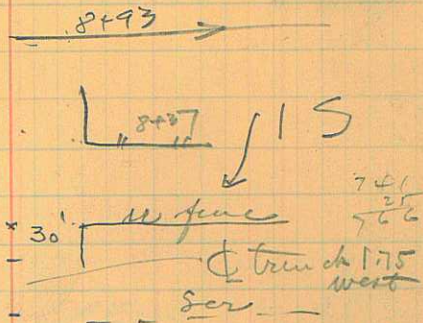 8+93
8+37
1 S
741
25
766
30' fence
℄ trench 1.75
west
Ser